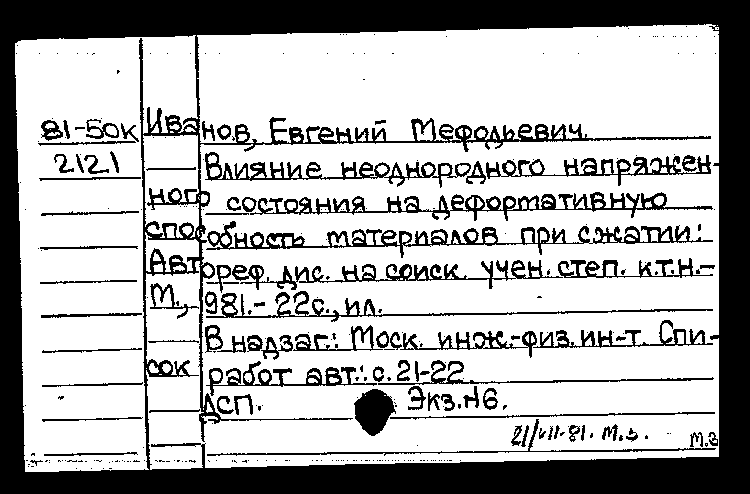 81-50к Иванов, Евгений Мефодьевич.
2121 Влияние неоднородного напряжен-
ного состояния на деформативную
способность материалов при сжатии:
Автореф. дис. на соиск. учен. степ. к.т.н.-
М., 981.- 22с., ил.
В надзаг.: Моск. инж.-физ. ин-т. Спи-
сок работ авт.: с. 21-22.
ДСП. Экз.№6.
21/VII-81. М.З.
М.З